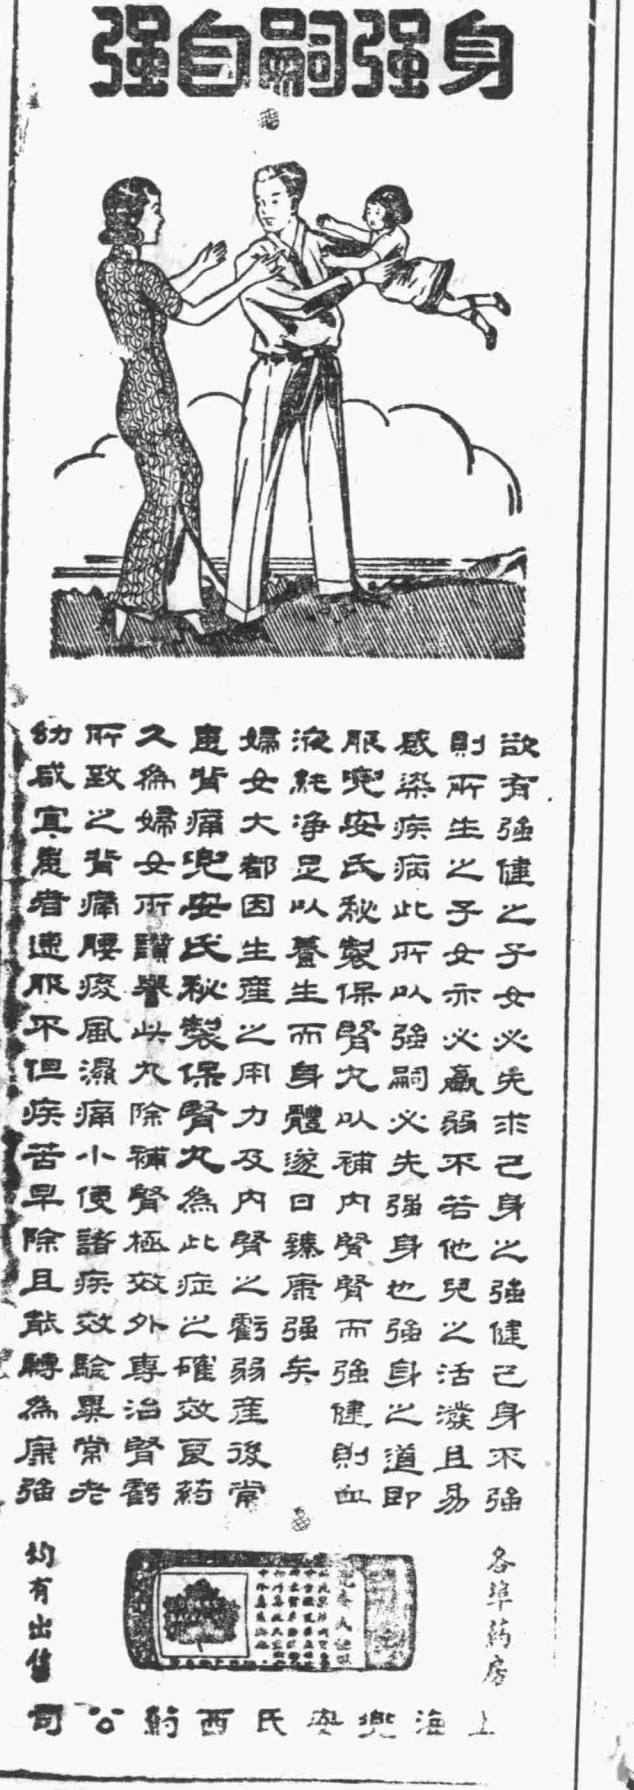 身强嗣自强
欲有強健之子女必先求己身之強健己身不強
則所生之子女亦必羸弱不若他兒之活潑且易
感染疾病此所以強嗣必先強身也強身之道即
服兜安氏秘製保腎丸以補內腎腎而強健則血
液純净足以養生而身體遂日臻康強矣
婦女大都因生產之用力及內腎之虧弱產後常
患背痛兜安氏秘製保腎丸為此症之確效良葯
久為婦女所讚譽此丸除補腎極效外專治腎虧
所致之背痛腰痠風濕痛小便諸疾效驗異常老
幼咸宜患者速服不但疾苦早除且能轉為康強
各埠葯房
均有出售
上海兜安氏西葯公司